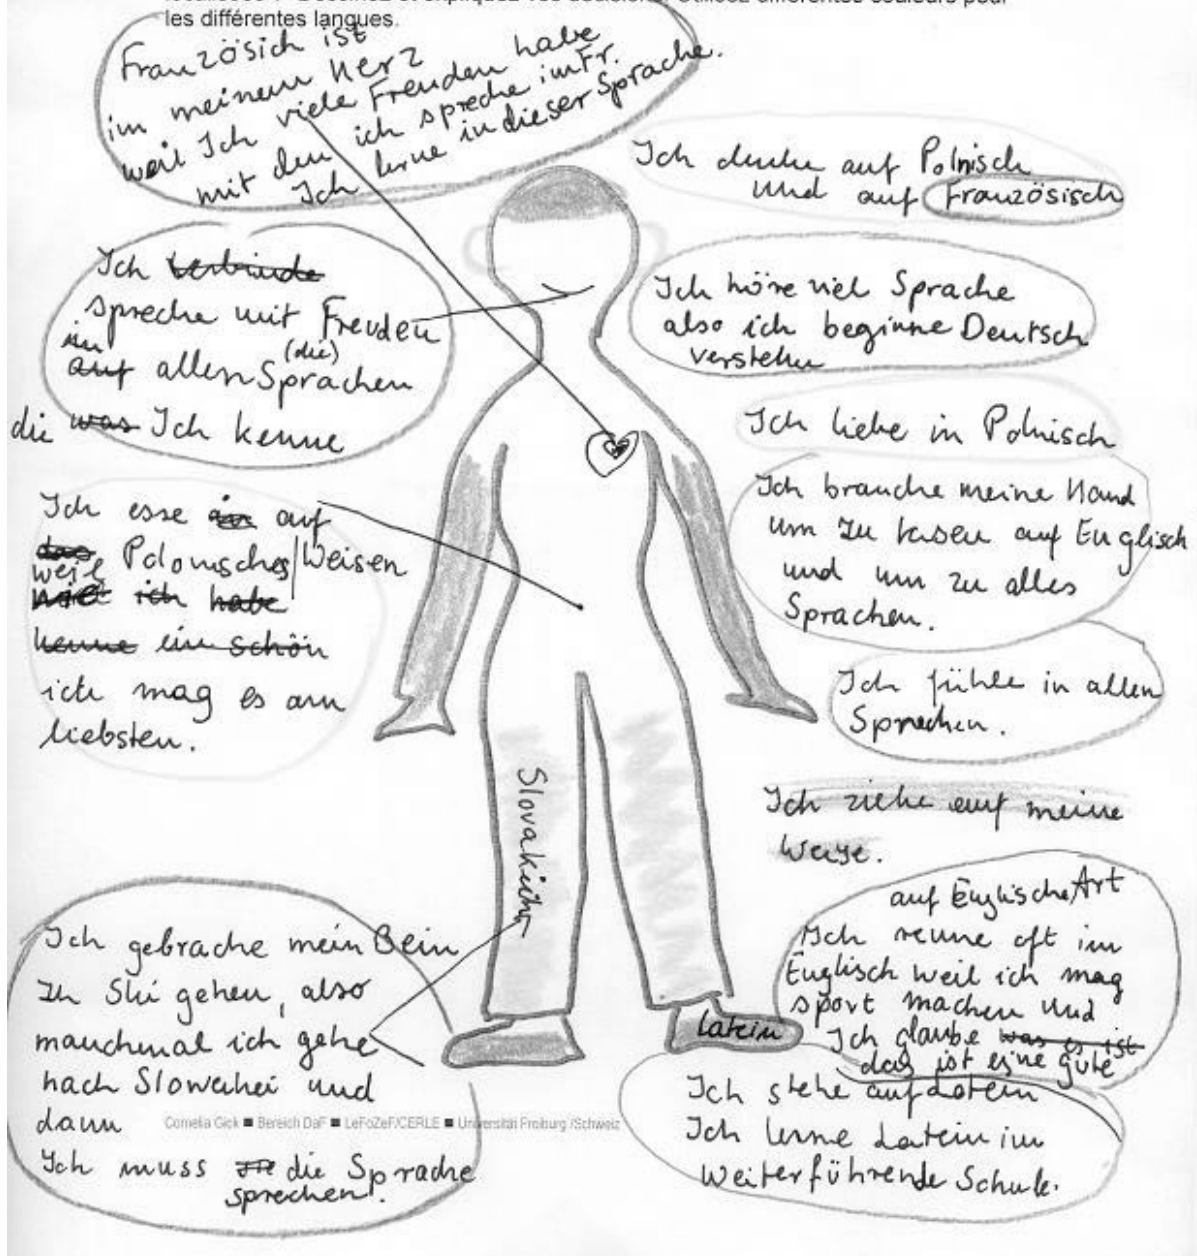 les différentes langues.
Französich ist
im meinem Herz
weil Ich viele Freuden habe
mit den ich spreche im Fr.
Ich lerne in dieser Sprache.
Ich denke auf Polnisch
und auf Französisch
Ich verbinde
spreche mit Freuden
im
auf allen (die) Sprachen
die was Ich kenne
Ich höre viel Sprache
also ich beginne Deutsch
verstehen
Ich liebe in Polnisch
Ich brauche meine Hand
um zu tasen auf Englisch
und um zu alles
Sprachen.
Ich esse auf
das Polonisches Weisen
weil
ich habe
kenne ein schön
ich mag es am
liebsten.
Ich fühle in allen
Sprachen.
Slovakisch
Ich ziehe auf meine
Weise.
auf Englische Art
Ich renne oft im
Englisch weil ich mag
sport machen und
Ich glaube was es ist
das ist eine gute
Latein
Ich gebrache mein Bein
zu Ski gehen, also
manchmal ich gehe
nach Slowakei und
dann
Ich muss die Sprache
sprechen.
Ich stehe auf Latein
Ich lerne Latein im
Weiterführende Schule.
Cornelia Gick ■ Bereich DaF ■ LeFoZeF/CERLE ■ Universität Freiburg /Schweiz